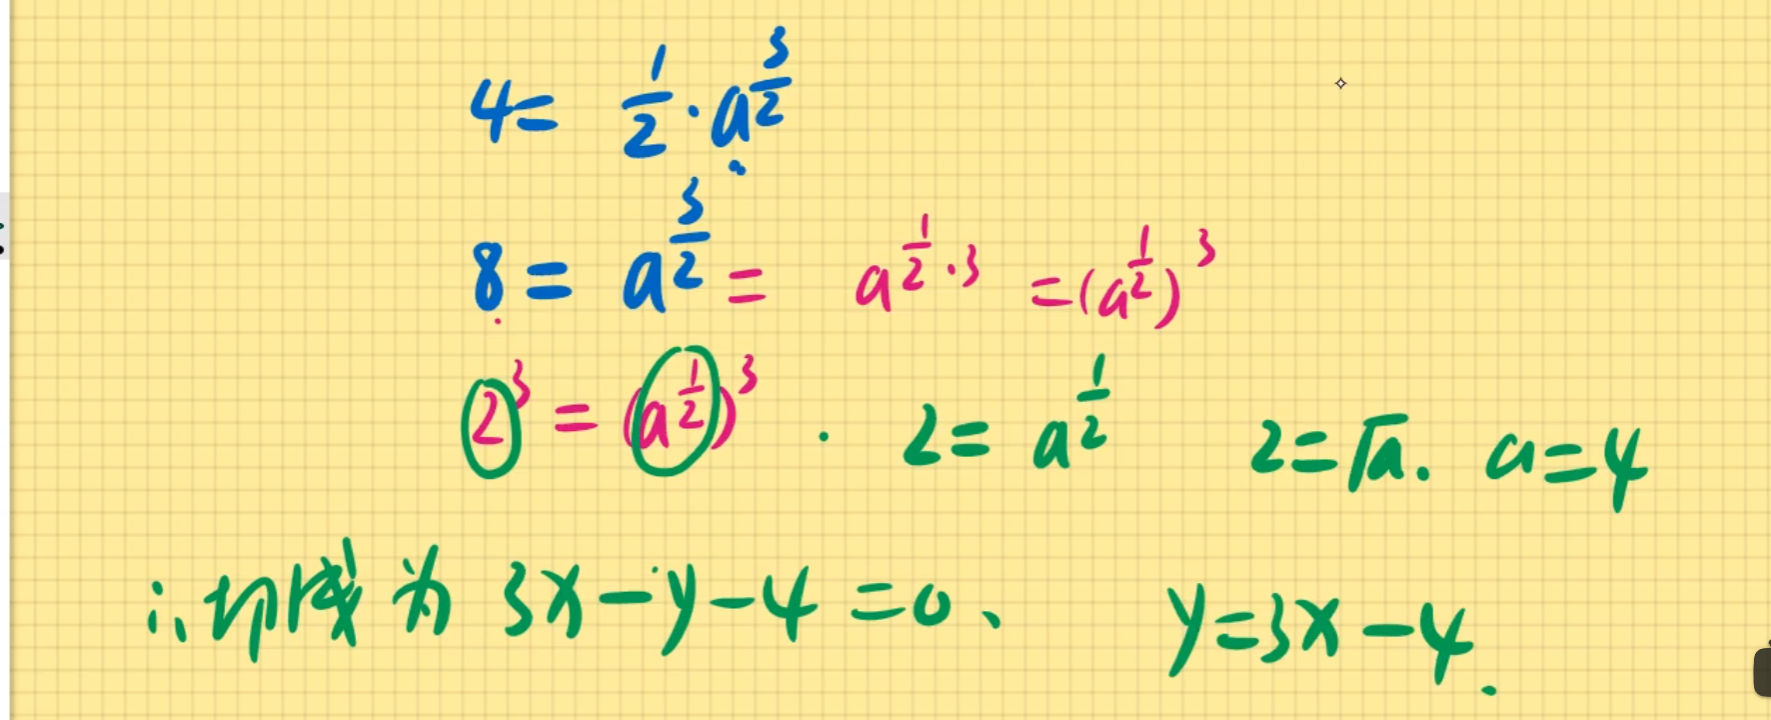 4 = 1/2 · a^(3/2)
8 = a^(3/2) = a^(1/2·3) = (a^(1/2))^3
2^3 = (a^(1/2))^3 . 2 = a^(1/2) 2 = √a. a = 4
∴ 切线为 3x - y - 4 = 0、 y = 3x - 4.